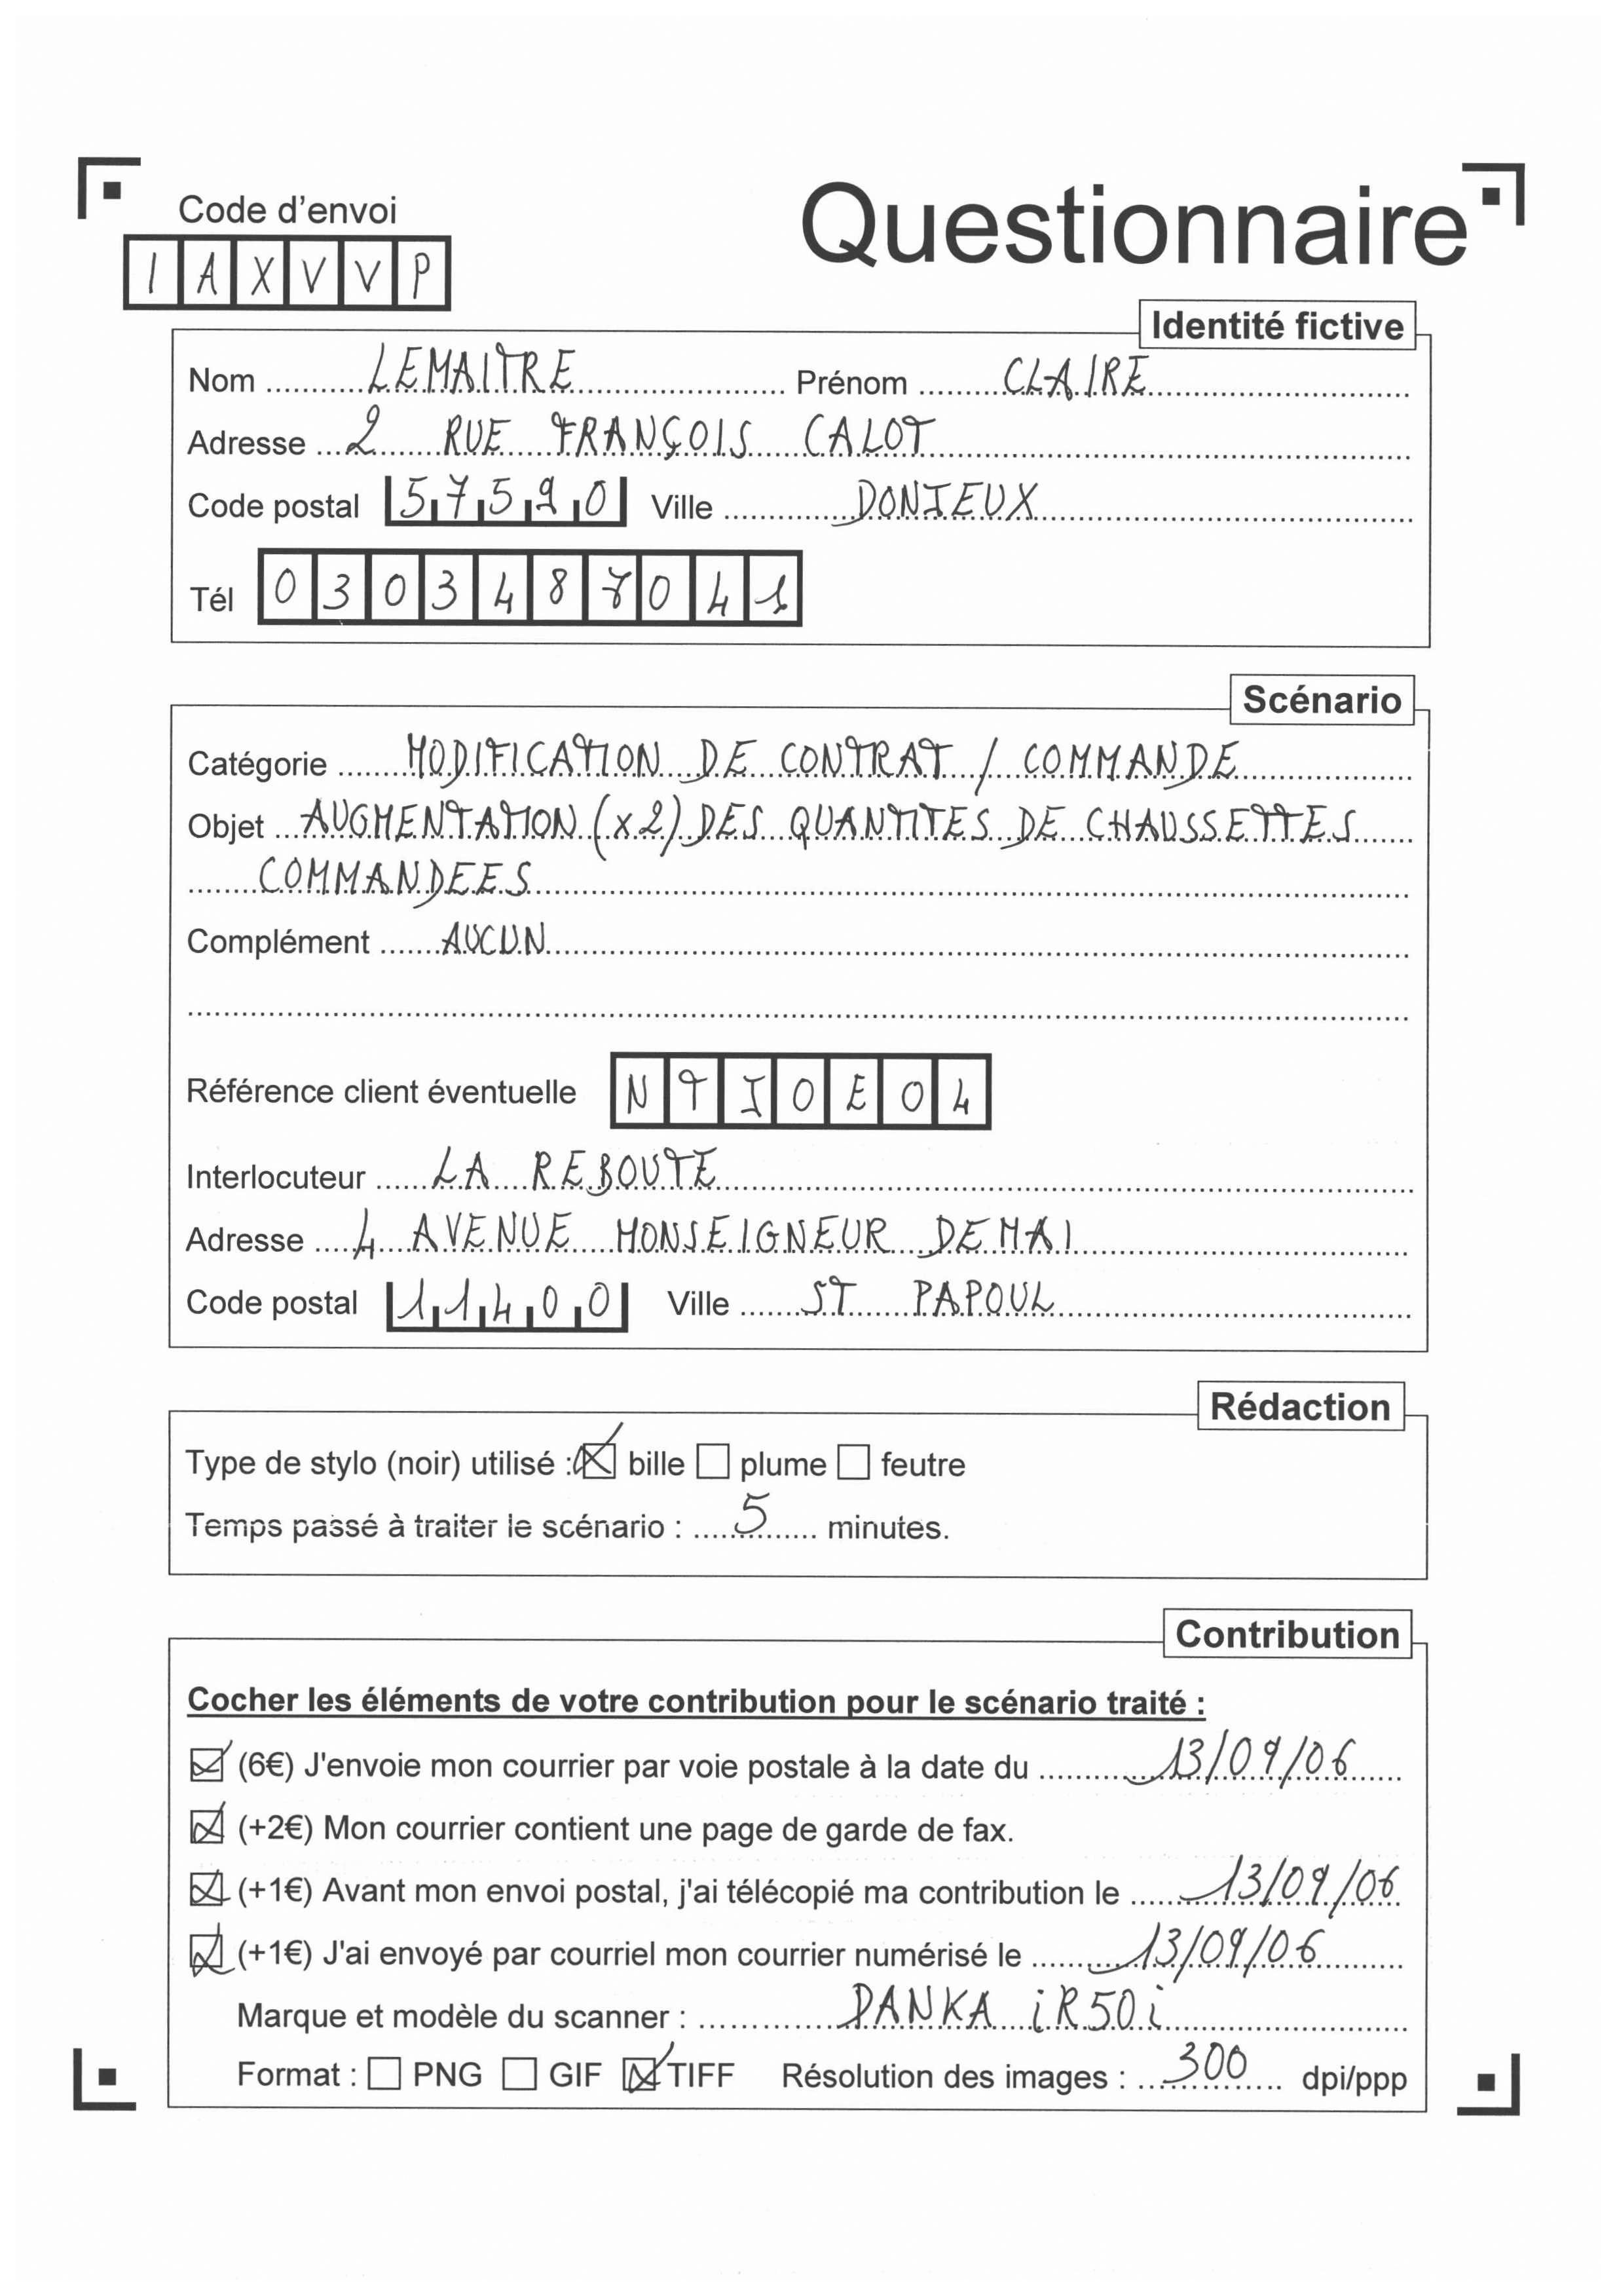 Code d'envoi
Questionnaire
I A X V V P
Identité fictive
Nom LEMAITRE Prénom CLAIRE
Adresse 2 RUE FRANÇOIS CALOT
Code postal 57590 Ville DONJEUX
Tél 0303487041
Scénario
Catégorie MODIFICATION DE CONTRAT / COMMANDE
Objet AUGMENTATION (x2) DES QUANTITES DE CHAUSSETTES
COMMANDEES
Complément AUCUN
Référence client éventuelle NTJOE04
Interlocuteur LA REBOUTE
Adresse 4 AVENUE MONSEIGNEUR DEMAI
Code postal 11400 Ville ST PAPOUL
Rédaction
Type de stylo (noir) utilisé : bille plume feutre
Temps passé à traiter le scénario : 5 minutes.
Contribution
Cocher les éléments de votre contribution pour le scénario traité :
(6€) J'envoie mon courrier par voie postale à la date du 13/09/06
(+2€) Mon courrier contient une page de garde de fax.
(+1€) Avant mon envoi postal, j'ai télécopié ma contribution le 13/09/06
(+1€) J'ai envoyé par courriel mon courrier numérisé le 13/09/06
Marque et modèle du scanner : DANKA iR50i
Format : PNG GIF TIFF Résolution des images : 300 dpi/ppp